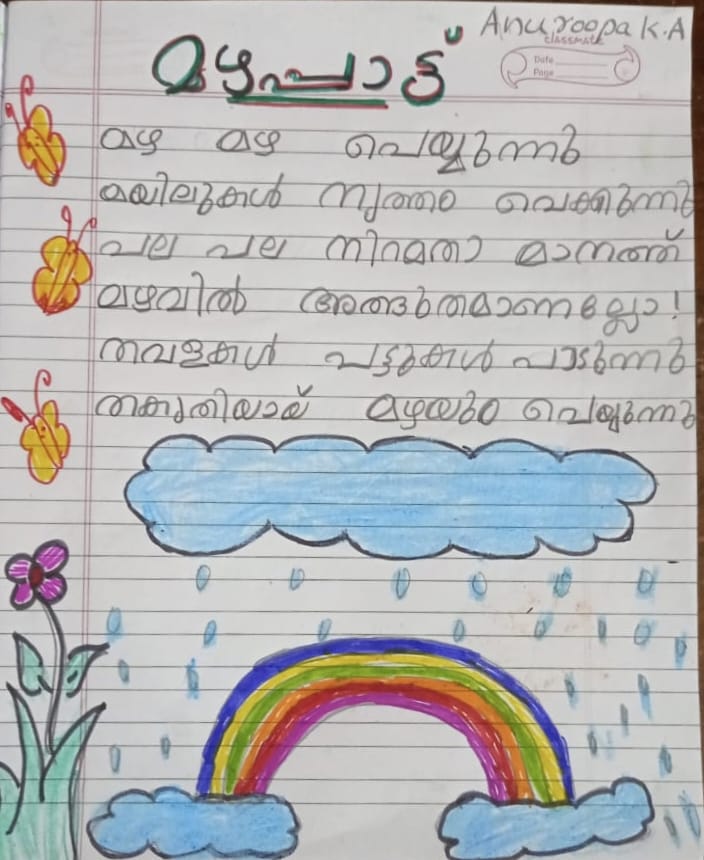 Anuroopa K.A
classmate
Date
Page
മഴപ്പാട്ട്
മഴ മഴ പെയ്യുന്നു
മയിലുകൾ നൃത്തം വെക്കുന്നു
പല പല നിറമതാ മാനത്ത്
മഴവിൽ അത്ഭുതമാണല്ലോ!
തവളകൾ പട്ടുകൾ പാടുന്നു
തകൃതിയായ് മഴയും പെയ്യുന്നു